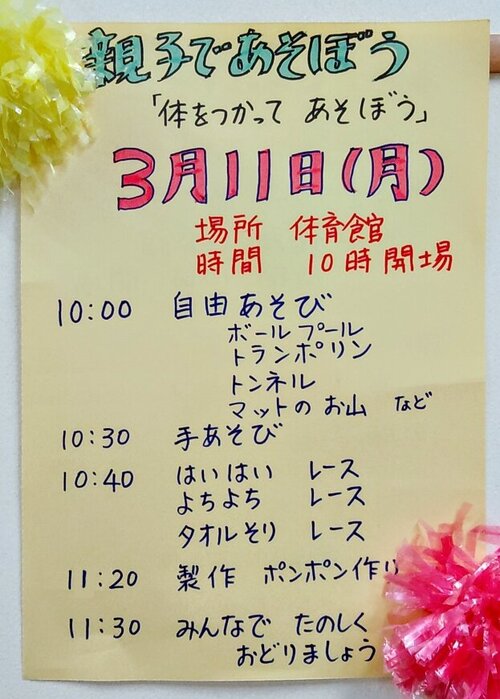 親子であそぼう
「体をつかって あそぼう」
3月11日(月)
場所 体育館
時間 10時開場
10:00 自由あそび
ボールプール
トランポリン
トンネル
マットのお山 など
10:30 手あそび
10:40 はいはい レース
よちよち レース
タオルそり レース
11:20 製作 ポンポン作り
11:30 みんなで たのしく
おどりましょう